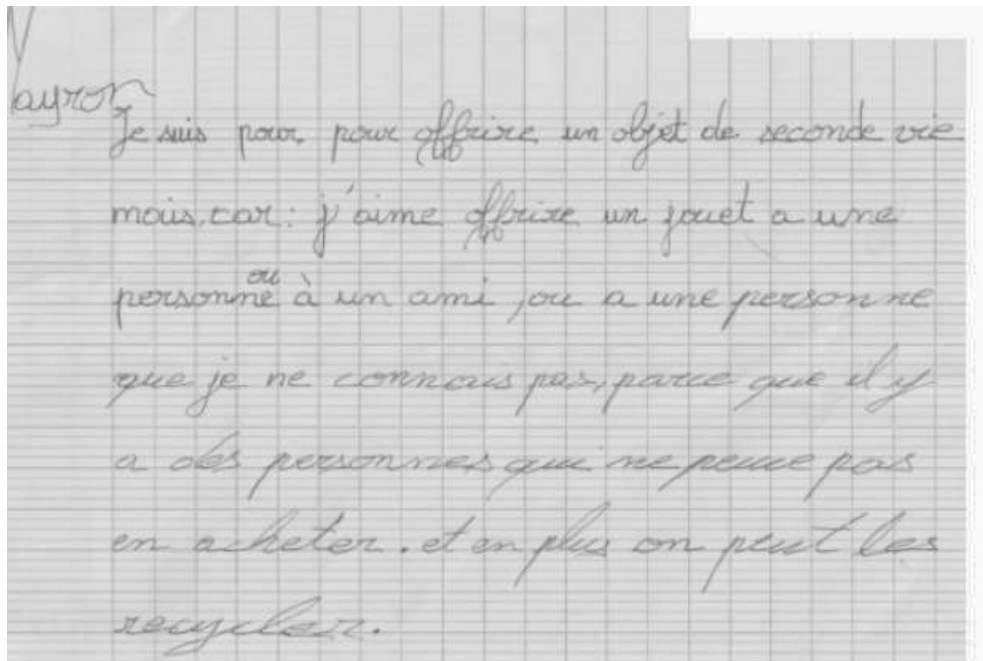 ayron
Je suis pour pour offrire un objet de seconde vie
mais, car : j'aime offrire un jouet a une
personne ou à un ami, ou a une personne
que je ne connais pas, parce que il y
a des personnes qui ne peuve pas
en acheter. et en plus on peut les
recycler.